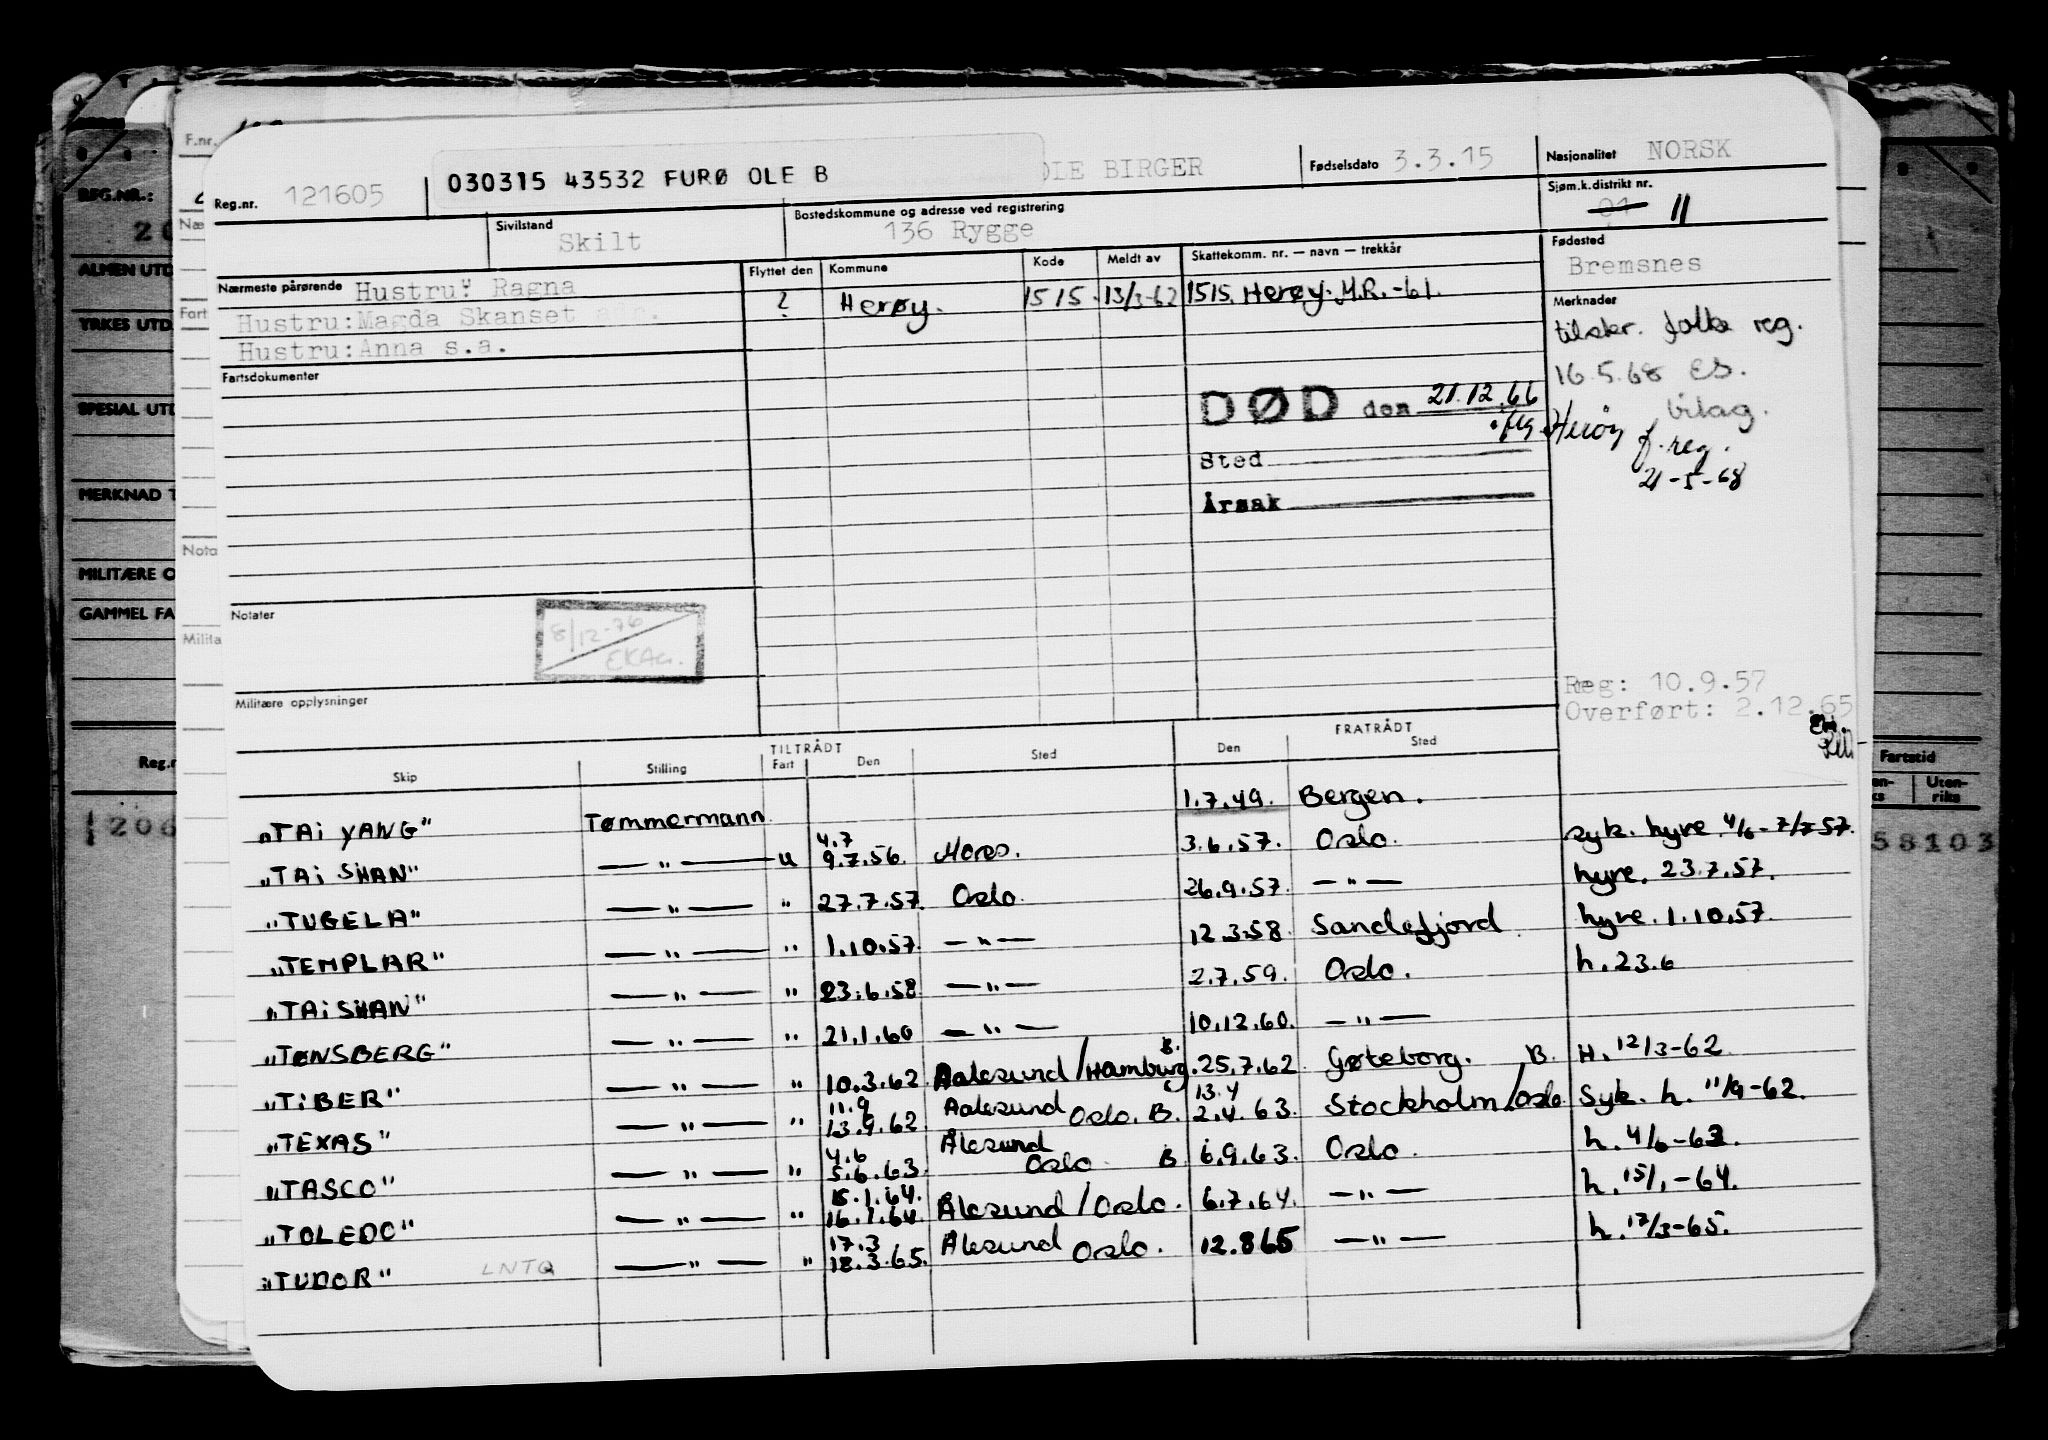 F.nr.
REG.NR.:
ALMEN UTD
YRKES UTD.
SPESIAL UTD
MERKNAD T
MILITÆRE O
GAMMEL FA
Reg.n
1206
Næ
Fart
Nota
Milita
Reg.nr. 121605 030315 43532 FURØ OLE B OLE BIRGER Fødselsdato 3.3.15 Nasjonalitet NORSK
Sivilstand Skilt Bostedskommune og adresse ved registrering 136 Rygge Sjøm.k.distrikt nr. 01 11
Nærmeste pårørende Hustru" Ragna
Hustru:Magda Skanset
Hustru:Anna s.a.
Flyttet den Kommune Kode Meldt av Skattekomm. nr. — navn — trekkår
? Herøy. 1515. 13/3-62 1515. Herøy. M.R.-61.
Fødested
Bremsnes
Merknader
tilskr. folke reg.
16.5.68 ES.
bilag.
ifg. Herøy f.reg.
21-5-68
Fartsdokumenter
DØD den 21.12.66
Sted
Årsak
Notater
8/12-76
Militære opplysninger
Reg: 10.9.57
Overført: 2.12.65
TILTRÅDT FRATRÅDT
Skip Stilling Fart Den Sted Den Sted
"TAI YANG" Tømmermann 1.7.49. Bergen.
"TAI SHAN" — " — u 4.7 9.7.56. Moss. 3.6.57. Oslo. syk. hyre 4/6-7/7-57.
"TUGELA" — " — " 27.7.57. Oslo. 26.9.57. — " — hyre. 23.7.57.
"TEMPLAR" — " — " 1.10.57. — " — 12.3.58. Sandefjord. hyre. 1.10.57.
"TAISHAN" — " — " 23.6.58. — " — 2.7.59. Oslo. h. 23.6
"TØNSBERG" — " — " 21.1.60 — " — 10.12.60. — " —
"TIBER" — " — " 10.3.62. Aalesund/Hamburg. B. 25.7.62 Gøteborg. B. H. 12/3-62
"TEXAS" — " — " 11.9 13.9.62 Aalesund Oslo. B. 13.4 2.4.63. Stockholm/Oslo Syk. h. 11/9-62.
"TASCO" — " — " 4.6 5.6.63. Ålesund Oslo B 6.9.63. Oslo. h. 4/6-63.
"TOLEDO" — " — " 15.1.64. 16.1.64. Ålesund/Oslo. 6.7.64. — " — h. 15/1-64.
"TUDOR" LNTQ — " — " 17.3 18.3.65. Ålesund Oslo. 12.865 — " — h. 17/3-65.
Fartstid
Uten-
riks
58103